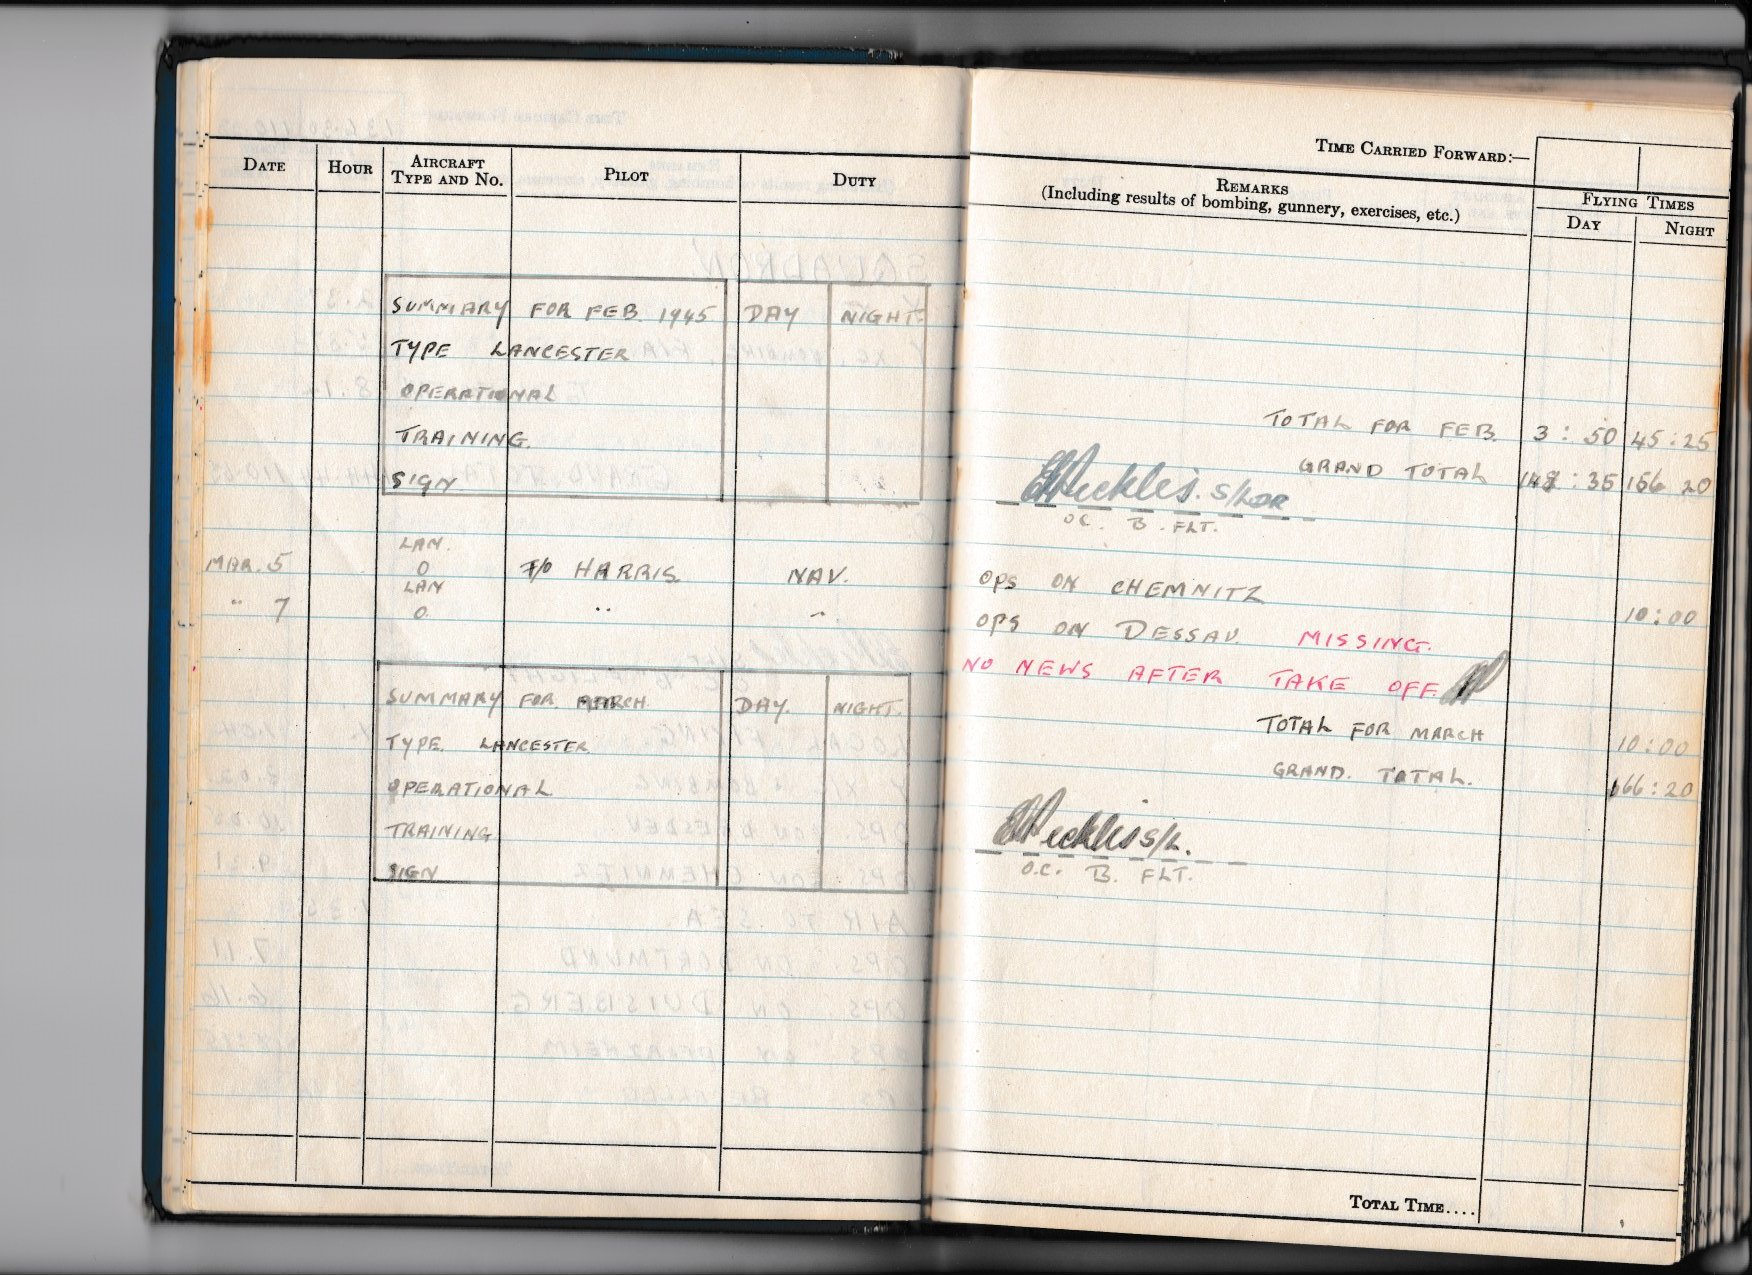 TIME CARRIED FORWARD:—
DATE HOUR AIRCRAFT TYPE AND No. PILOT DUTY REMARKS (Including results of bombing, gunnery, exercises, etc.) FLYING TIMES DAY NIGHT
SUMMARY FOR FEB. 1945 DAY NIGHT.
TYPE LANCESTER
OPERATIONAL
TOTAL FOR FEB. 3:50 45:25
TRAINING.
GRAND TOTAL 148:35 156 20
SIGN
S/LDR
O.C. B. FLT.
LAN.
MAR. 5 O F/O HARRIS. NAV. OPS ON CHEMNITZ 10:00
LAN
" 7 O. " " OPS ON DESSAU. MISSING.
NO NEWS AFTER TAKE OFF.
SUMMARY FOR MARCH. DAY. NIGHT.
TOTAL FOR MARCH 10:00
TYPE. LANCESTER
GRAND. TOTAL. 166:20
OPERATIONAL
TRAINING
S/L.
SIGN
O.C. B. FLT.
TOTAL TIME....